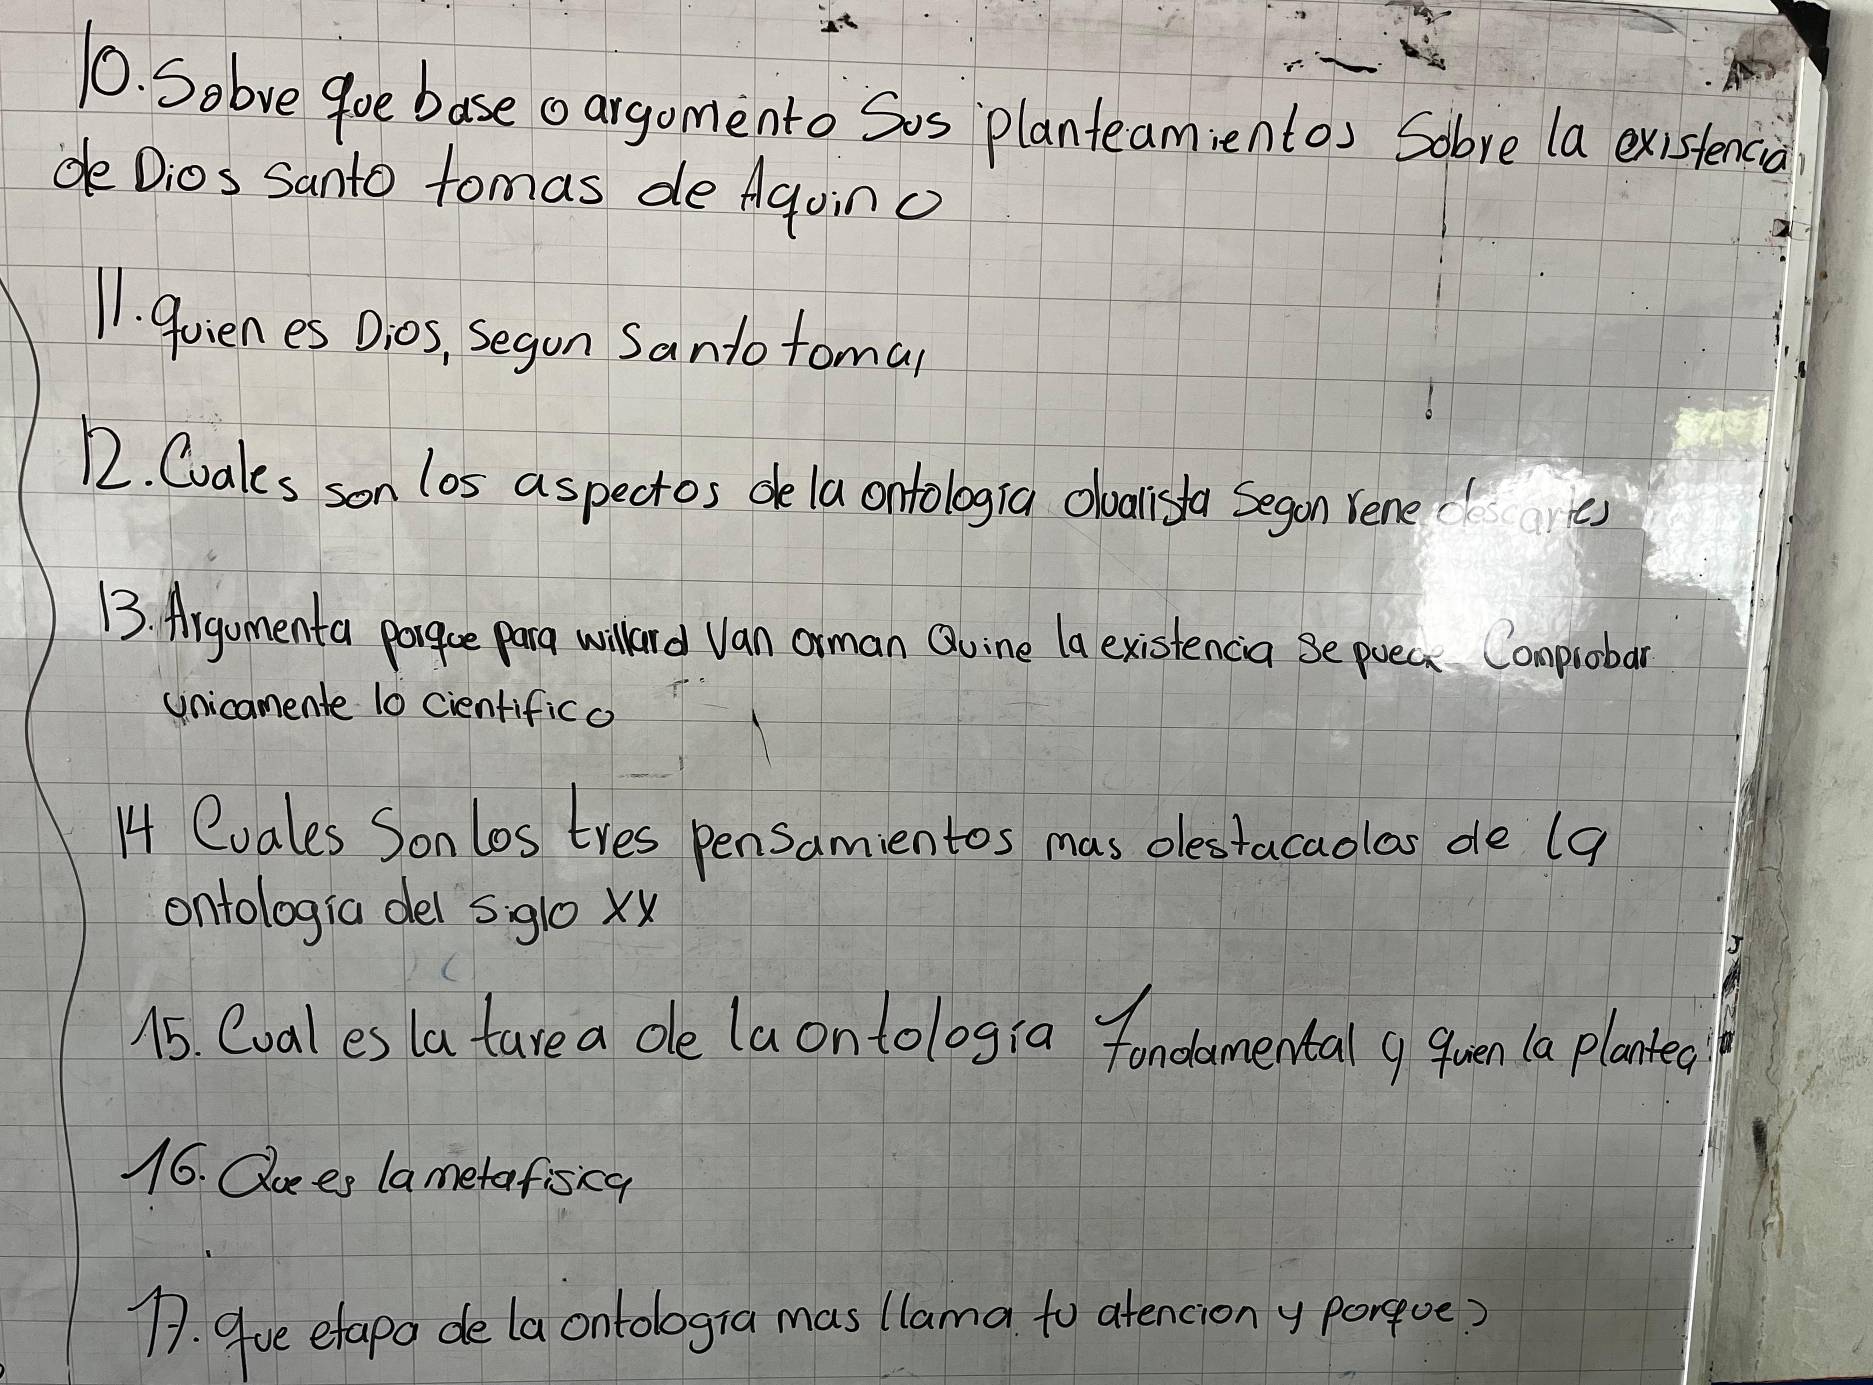 10. Sobre que base o argumento Sus planteamientos Sobre la existencia
de Dios santo tomas de Aquino
11. quien es Dios, segun santo tomas
12. Cuales son los aspectos de la ontologia dualista segun rene descartes
13. Argumenta porque para willard Van orman Quine la existencia se puede Comprobar
unicamente lo cientifico
14 Cuales Son los tres pensamientos mas destacados de la
ontologia del siglo XX
15. Cual es la tarea de la ontologia fundamental y quien la plantea
16. Que es la metafisica
17. que etapa de la ontologia mas llama tu atencion y porque?